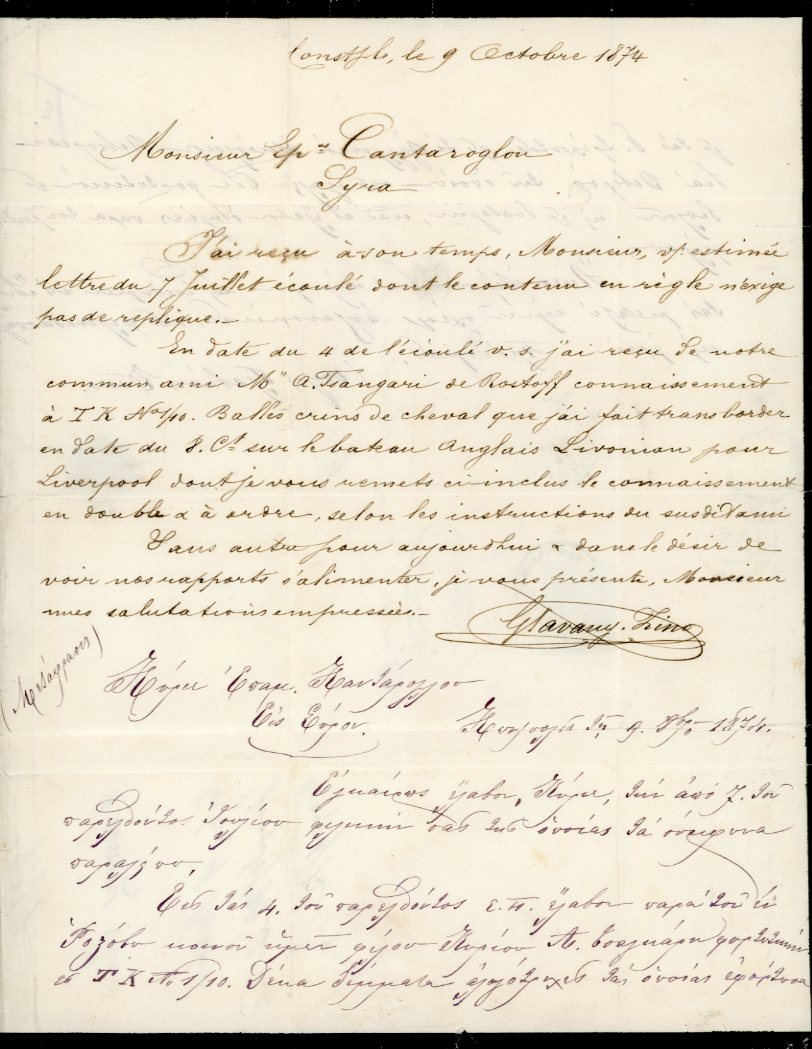 Constple, le 9 Octobre 1874
Monsieur Epas Cantaroglou
Syra
J'ai reçu à son temps, Monsieur, v/. estimée
lettre du 7 Juillet écoulé dont le contenu en règle n'exige
pas de replique.-
En date du 4 de l'écoulé v. s. j'ai reçu de notre
commun ami Mr A. Tsangari de Rostoff connaissement
à T K No 1/10. Balles crins de cheval que j'ai fait transborder
en date du 8. Ct sur le bateau Anglais Livonian pour
Liverpool dont je vous remets ci-inclus le connaissement
en double & à ordre, selon les instructions du susdit ami
Sans autre pour aujourdhui & dans le désir de
voir nos rapports s'alimenter, je vous présente, Monsieur
mes salutations empressées.-
Glavany
(Μετάφρασις)
Κύριε Έπαμ. Κανταρόγλου
Εἰς Σύρον.
Κπολις τῇ 9. 8βρίου 1874.
Εγκαίρως έλαβον, Κύριε, τὴν ἀπό 7. τοῦ
παρελθόντος Ἰουλίου φιλικήν σας της ὁποίας τά σύμφωνα
παραλείπω,
Εις τάς 4. τοῦ παρελθόντος ε. π. έλαβον παρά τοῦ ἐν
Ροστόβω κοινοῦ ἡμῶν φίλου Κυρίου Α. Τσαγκάρη φορτωτικήν
T K No 1/10. Δέκα δέμματα ἀλογότριχες τάς ὁποίας ἐφόρτωσα